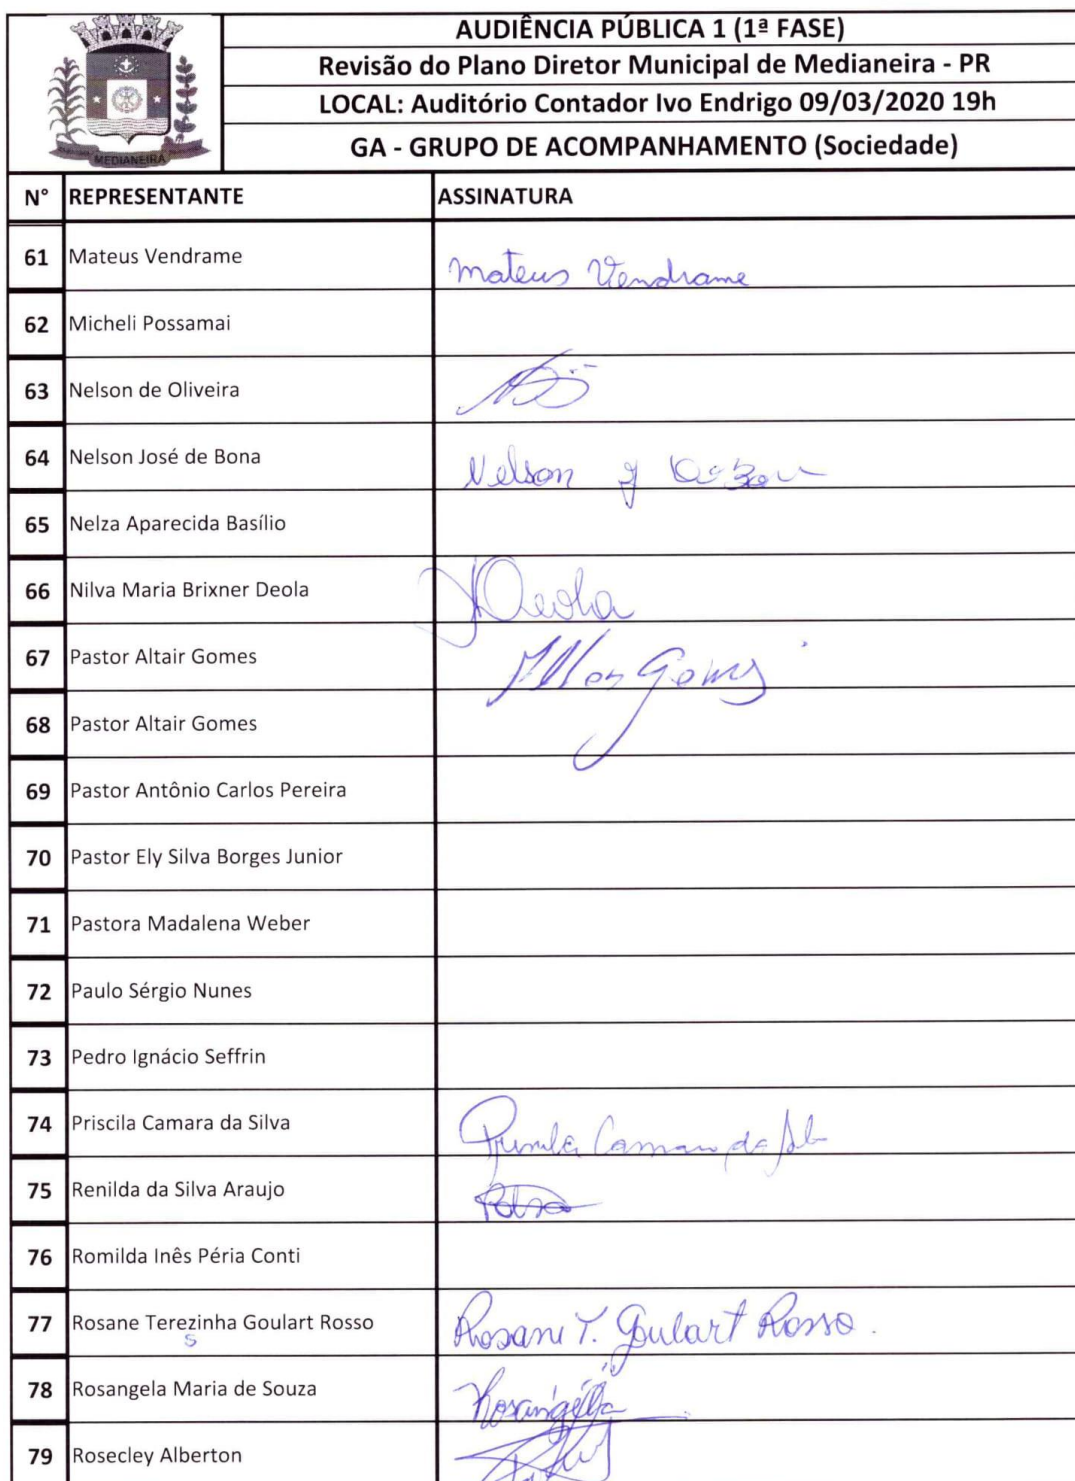 AUDIÊNCIA PÚBLICA 1 (1ª FASE)
Revisão do Plano Diretor Municipal de Medianeira - PR
LOCAL: Auditório Contador Ivo Endrigo 09/03/2020 19h
GA - GRUPO DE ACOMPANHAMENTO (Sociedade)
MEDIANEIRA
N° REPRESENTANTE ASSINATURA
61 Mateus Vendrame Mateus Vendrame
62 Micheli Possamai
63 Nelson de Oliveira
64 Nelson José de Bona Nelson J
65 Nelza Aparecida Basílio
66 Nilva Maria Brixner Deola Deola
67 Pastor Altair Gomes Gomes
68 Pastor Altair Gomes
69 Pastor Antônio Carlos Pereira
70 Pastor Ely Silva Borges Junior
71 Pastora Madalena Weber
72 Paulo Sérgio Nunes
73 Pedro Ignácio Seffrin
74 Priscila Camara da Silva
75 Renilda da Silva Araujo
76 Romilda Inês Péria Conti
77 Rosane Terezinha Goulart Rosso Rosane T. Goulart Rosso.
s
78 Rosangela Maria de Souza Rosangela
79 Rosecley Alberton